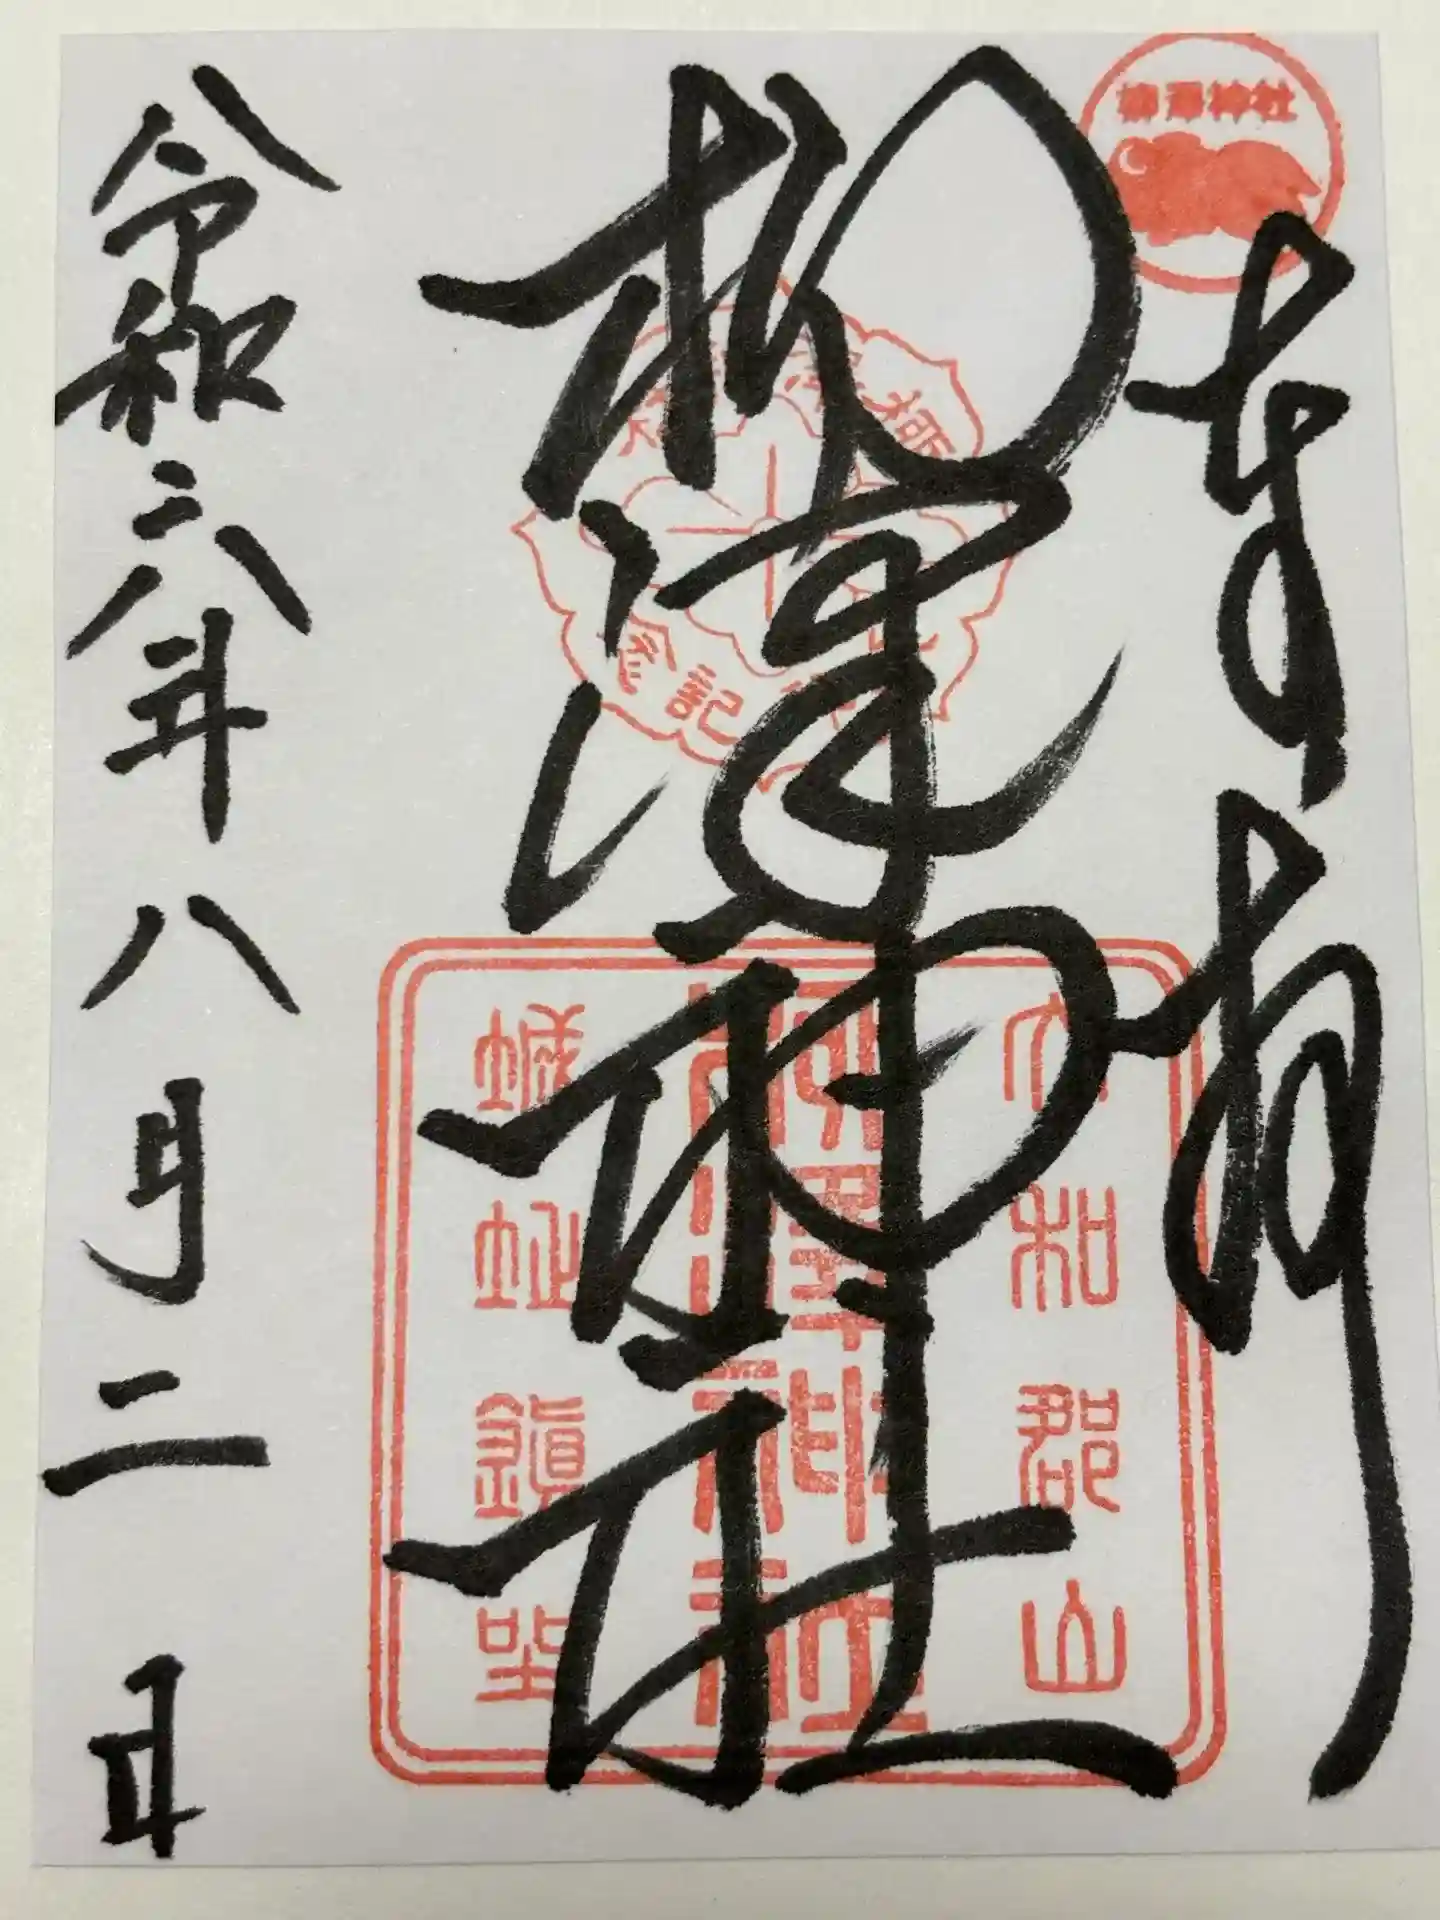 柳澤神社
奉拝
柳澤神社
柳澤神社
参拝記念
大和郡山
柳澤神社
鎮坐
令和六年八月二日